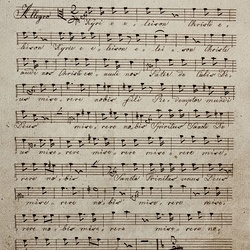 Allegro
Kyri e e leison Christe e
leison Kyrie e e leison e lei son Christe
audi nos Christe ex audi nos Pater de Coelis De
us mise rere nobis fili Redemptor mundi
Deus mise rere no bis Spiritus Sancte De
us mise rere mise rere mise rere
rere no bis Sancta Trinitas unus Deus
mise rere no bis mise rere mise
rere no bis mise rere mise rere no bis